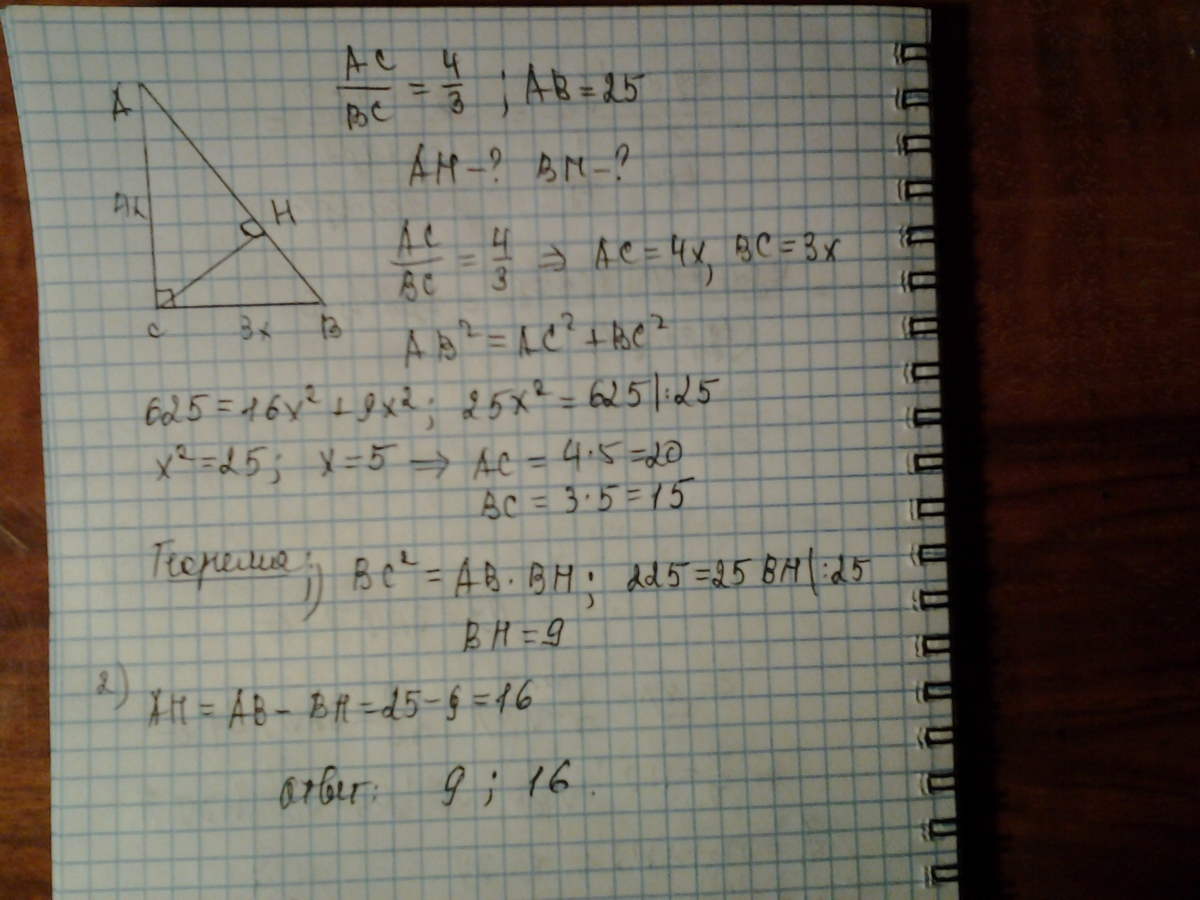 AC/BC = 4/3 ; AB = 25
AH - ? BH - ?
A
4x
H
C 3x B
AC/BC = 4/3 ⇒ AC = 4x, BC = 3x
AB² = AC² + BC²
625 = 16x² + 9x²; 25x² = 625 |:25
x² = 25; x = 5 ⇒ AC = 4·5 = 20
BC = 3·5 = 15
Теорема; 1) BC² = AB · BH; 225 = 25 BH |:25
BH = 9
2) AH = AB - BH = 25 - 9 = 16
ответ: 9 ; 16.